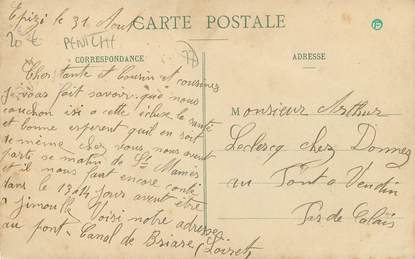 Epizi le 31 Aout
CARTE POSTALE
20 €
PENICHE
77
CORRESPONDANCE
ADRESSE
Cher tante et Cousin et cousines
je vous fait savoir que nous
couchon isi a cette écluse la santé
et bonne esperent quil en soit
de même chez vous nous avont
parti se matin de St Mamès
et il nous faut encore conté
dans le 13 a 14 jour avant être
a Jimouille Voisi notre adresse
au pont Canal de Briare (Loiret)
Monsieur Arthur
Leclercq chez Donnez
au Pont a Vendin
Pas de Calais